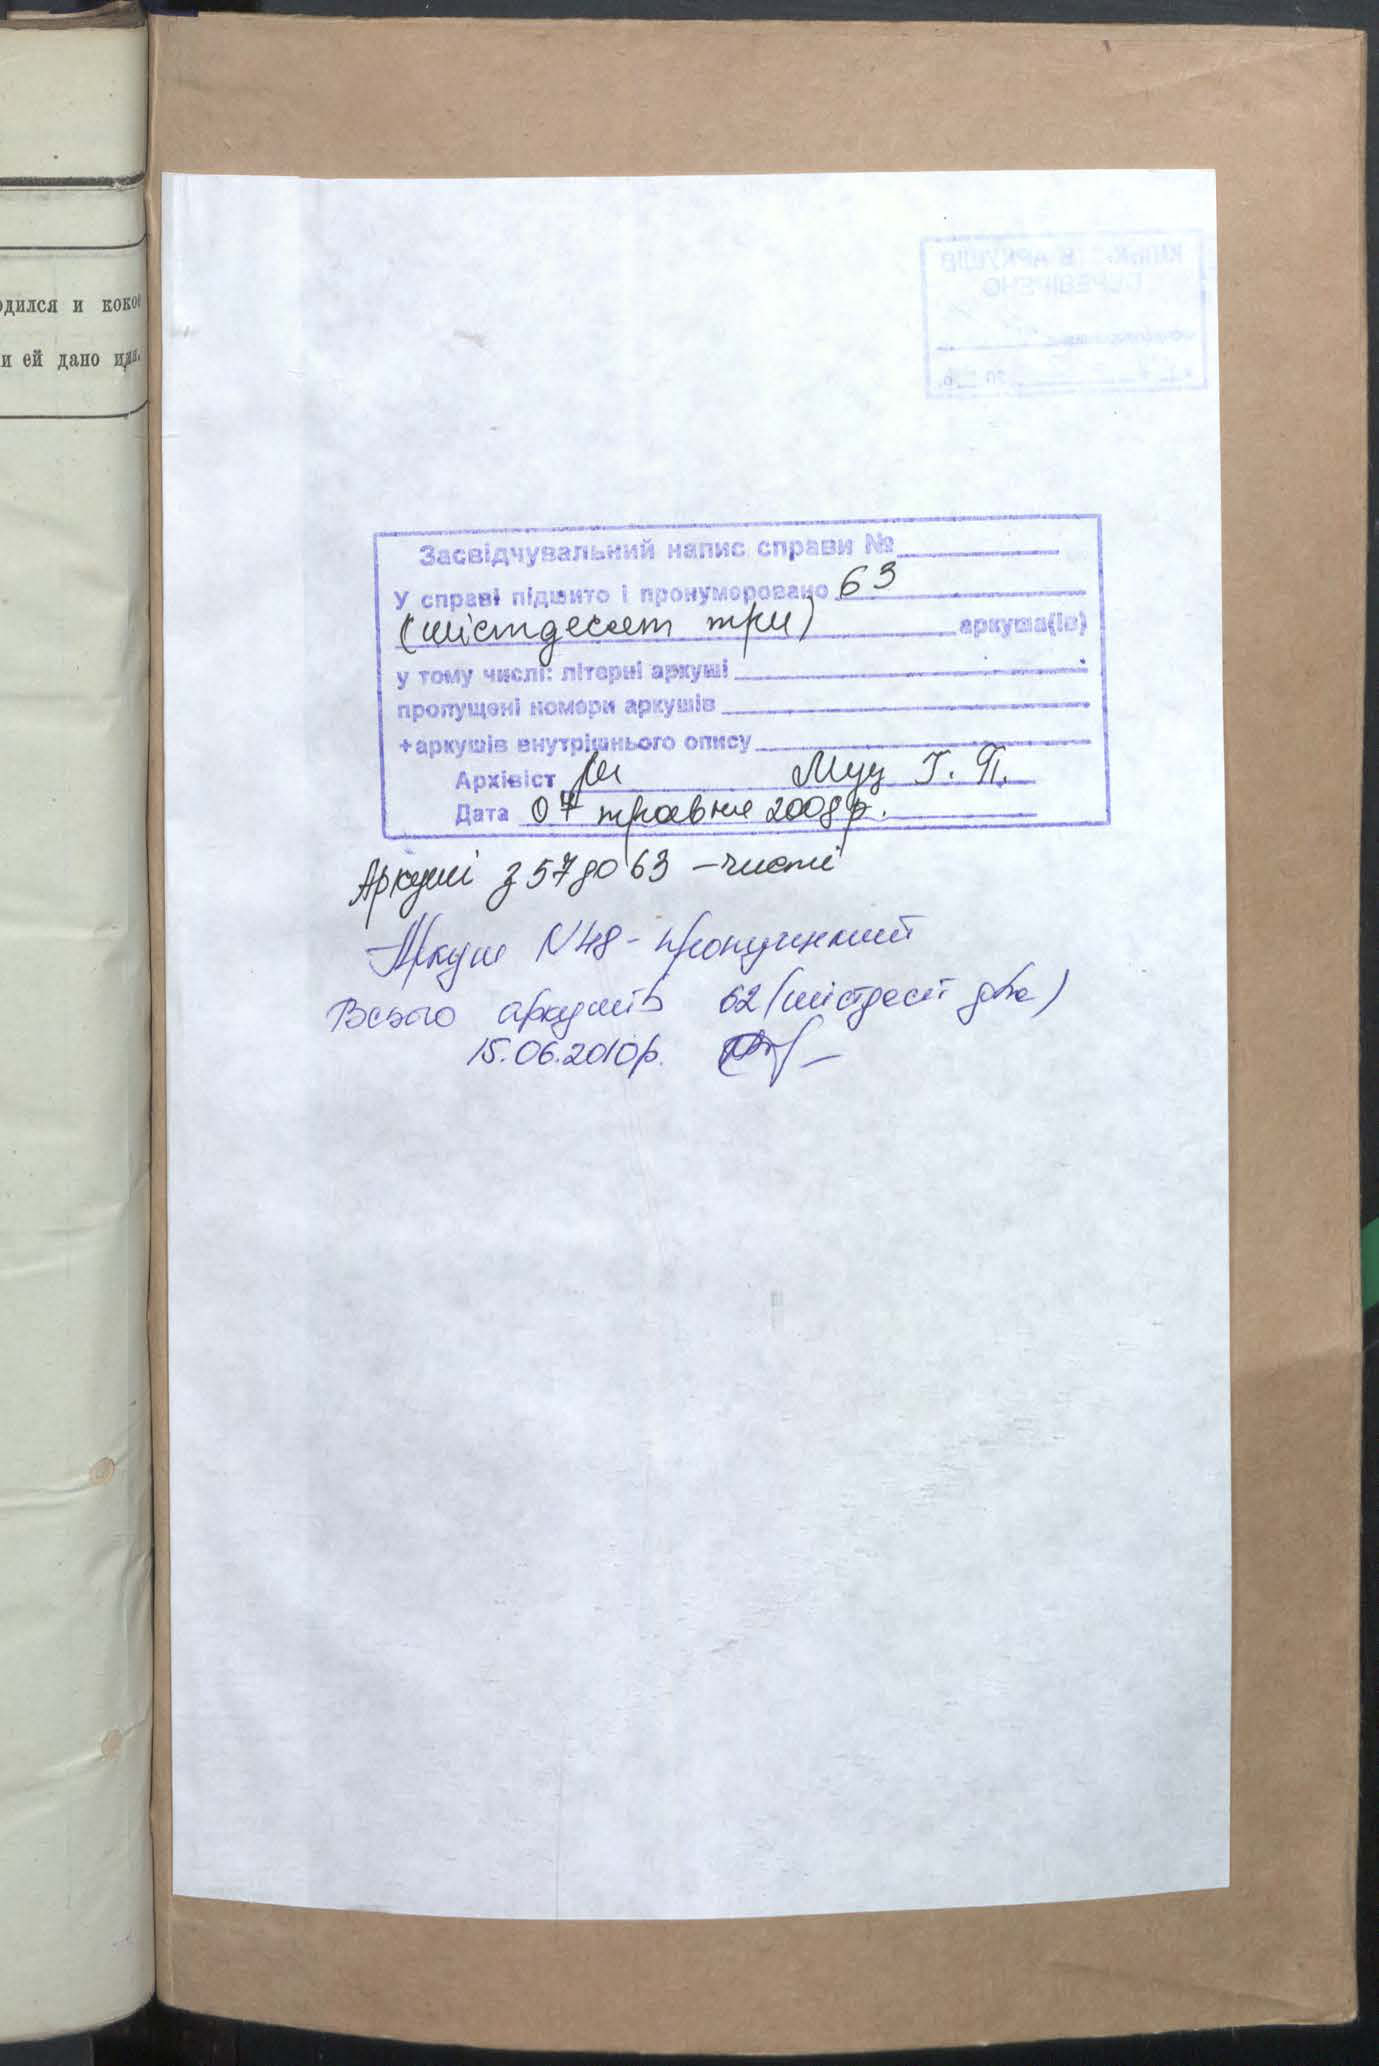 одился и кокое
и ей дано имя.
КІЛЬКІСТЬ АРКУШІВ
ПЕРЕВІРЕНО
20 р.
Засвідчувальний напис справи №
У справі підшито і пронумеровано 63
(шістдесят три) аркуша(ів)
у тому числі: літерні аркуші
пропущені номери аркушів
+аркушів внутрішнього опису
Архівіст Муц Г. П.
Дата 07 травня 2008 р.
Аркуші з 57 до 63 – чисті
Аркуш N 48 – пропущений
Всього аркушів 62 (шістдесят два)
15.06.2010р.